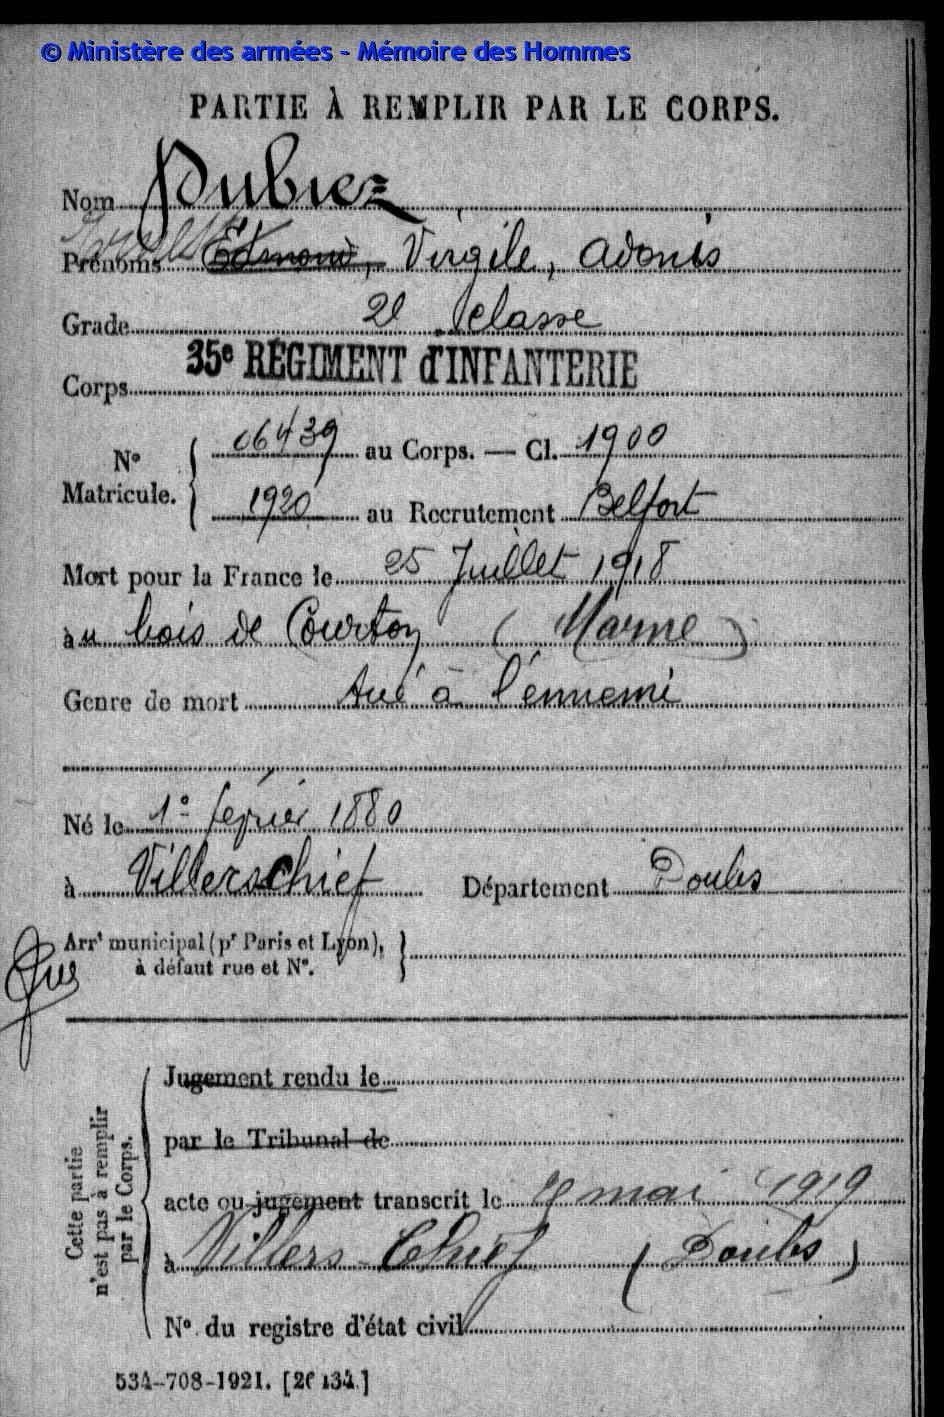 © Ministère des armées - Mémoire des Hommes
PARTIE À REMPLIR PAR LE CORPS.
Nom Dubiez
Prénoms Edmond, Virgile, Adonis
Grade 2e classe
Corps 35e RÉGIMENT d'INFANTERIE
N° Matricule. { 06439 au Corps. — Cl. 1900
1920 au Recrutement Belfort
Mort pour la France le 25 Juillet 1918
àu bois de Courton (Marne)
Genre de mort tué à l'ennemi
Né le 1° février 1880
à Villerschief Département Doubs
Arrt municipal (pr Paris et Lyon),
à défaut rue et N°.
Cette partie
n'est pas à remplir
par le Corps.
Jugement rendu le
par le Tribunal de
acte ou jugement transcrit le mai 1919
à Villers-Chief (Doubs)
N° du registre d'état civil
534-708-1921. [26134.]